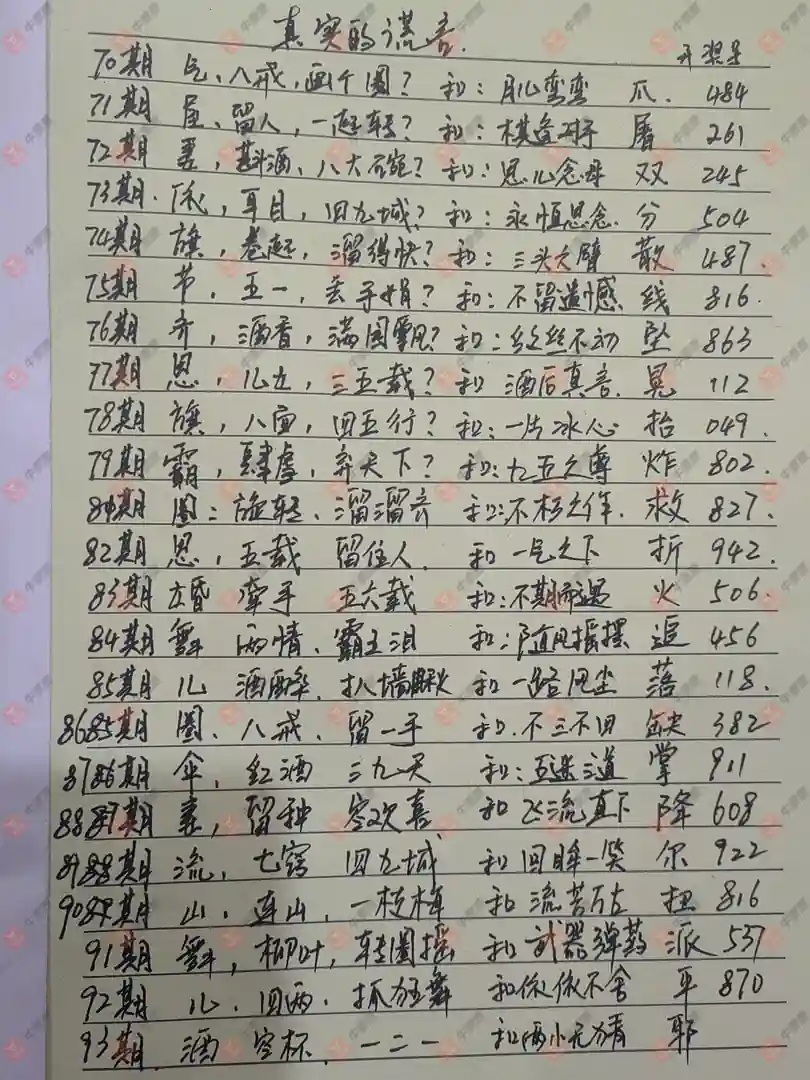 真实的谎言.
开奖号
70期 气、八戒,画个圈? 和:月儿弯弯 爪. 484
71期 居、留人,一起转? 和:棋逢对手 屠 261
72期 美,斟酒、八大碗? 和:思儿念母 双 245
73期. 依,耳目,四九城? 和:永恒思念. 分 504
74期 旗,卷起,溜得快? 和:三头六臂 散 487.
75期 节,五一,丢手娟? 和:不留遗憾 线 816.
76期 奔,酒香,满园飘? 和:纹丝不动 坠 863
77期 恩,儿九,三五载? 和 酒后真言. 晃 112
78期 旗,八面,四五行? 和:一片冰心 抬 049.
79期 霸,肆虐,弃天下? 和:九五之尊 炸 802.
81期 圈:旋转、溜溜言 和:不朽之作. 救 827.
82期 恩,五载 留住人. 和 一气之下 折 942.
83期 婚 牵手 五六载 和:不期而遇 火 506.
84期 舞 两情、霸王泪 和:随风摇摆 追 456
85期 儿 酒醉、扒墙瞅 和 一路风尘 落 118.
86期 圈、八戒、留一手 和.不三不四 缺 382
87期 伞,红酒 三九天 和:五迷三道 掌 911
88期 美,留种 空欢喜 和 飞流直下 降 608
89期 流,七窍 四九城 和回眸一笑 尔 922
90期 山.连山,一枝梅 和 流芳百古 扭 816
91期 舞,柳叶,转圈摇 和 武器弹药 派 537
92期 儿.四两.抓狂舞 和依依不舍 平 870
93期 酒 空杯.一二一 和两小无猜 耶